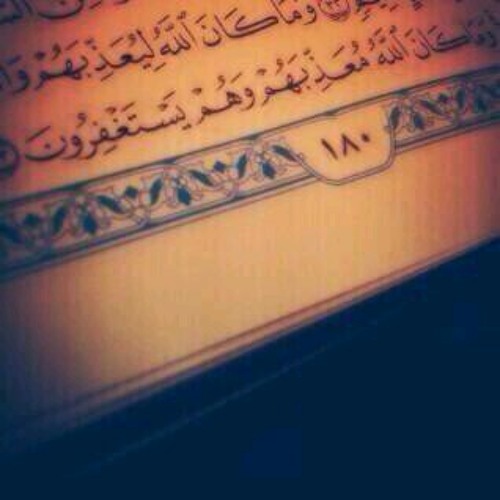 وَمَا كَانَ اللَّهُ لِيُعَذِّبَهُمْ
وَمَا كَانَ اللَّهُ مُعَذِّبَهُمْ وَهُمْ يَسْتَغْفِرُونَ
١٨٠